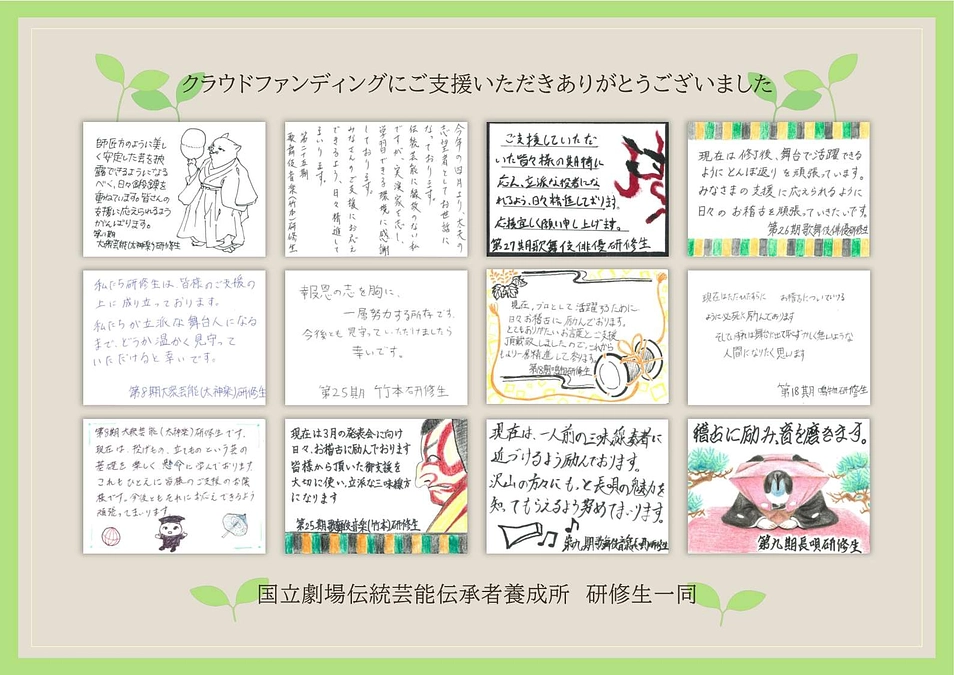 クラウドファンディングにご支援いただきありがとうございました
師匠方のように美し
く安定した芸を披
露できるようになる
べく、日々鍛錬を
重ねています。皆さんの
支援に応えられるよう
がんばります。
第8期
大衆芸能(太神楽)研修生
今年の四月より、太夫の
志望者としてお世話に
なっております。
伝統芸能に縁故のない私
ですが、実演家を志し、
学習できる環境に感謝
しております。
みなさんのご支援にお応え
できるよう、日々精進して
まいります。
第二十五期
歌舞伎音楽(竹本)研修生
ご支援していただ
いた皆々様の期待に
応え、立派な役者にな
れるよう、日々精進しております。
応援宜しくお願い申し上げます。
第27期歌舞伎俳優研修生
現在は修了後、舞台で活躍できる
ようにとんぼ返りを頑張っています。
みなさまの支援に応えられるように
日々のお稽古を頑張っていきたいです。
第26期歌舞伎俳優研修生
私たち研修生は、皆様のご支援の
上に成り立っております。
私たちが立派な舞台人になる
まで、どうか温かく見守って
いただけると幸いです。
第8期大衆芸能(太神楽)研修生
報恩の志を胸に、
一層努力する所存です。
今後とも見守っていただけましたら
幸いです。
第25期 竹本研修生
現在、プロとして活躍するために
日々お稽古に励んでおります。
とてもありがたいお言葉とご支援
頂戴致しましたので、これから
もより一層精進して参ります。
第18期鳴物研修生
現在はただひたすらに お稽古についていける
ように必死に励んでおります
そして行く行くは舞台に出て恥ずかしく無いような
人間になりたく思います
第18期 鳴物研修生
第8期大衆芸能(太神楽)研修生です。
現在は、投げもの、立てものという芸の
基礎を楽しく懸命に学んでおります。
これもひとえに皆様のご支援のお陰
様です。今後ともそれにおこたえできるよう
頑張ってまいります
現在は3月の発表会に向け
日々、お稽古に励んでおります
皆様から頂いた御支援を
大切に使い、立派な三味線方
になります
第25期歌舞伎音楽(竹本)研修生
現在は、一人前の三味線奏者に
近づけるよう励んでおります。
沢山の方々にもっと長唄の魅力を
知ってもらえるよう努めてまいります。
第九期歌舞伎音楽長唄研修生
稽古に励み、音を磨きます。
第九期長唄研修生
国立劇場伝統芸能伝承者養成所 研修生一同